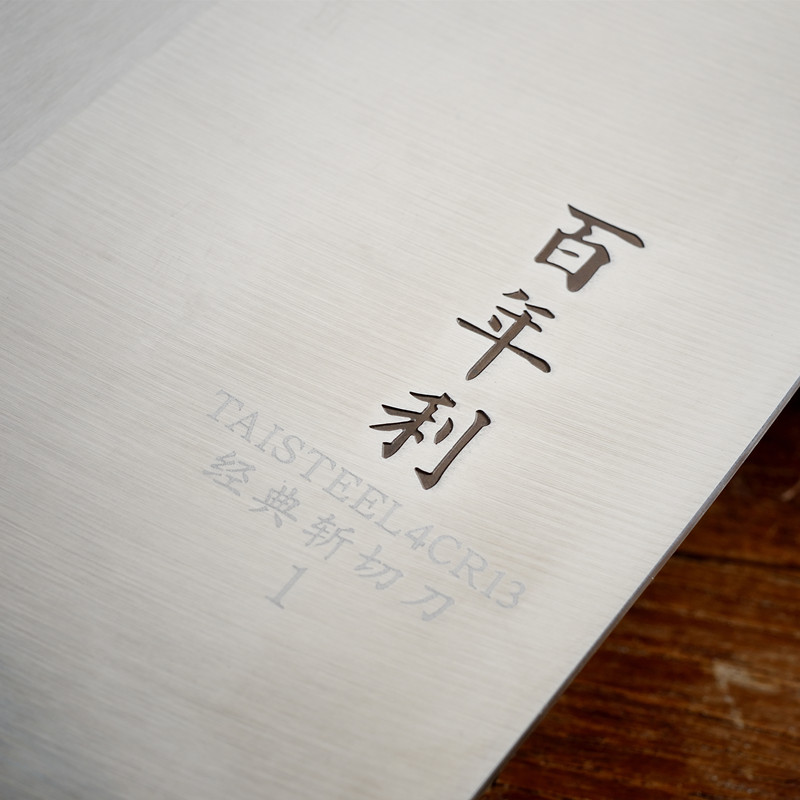 百年利
TAISTEEL4CR13
经典斩切刀
1